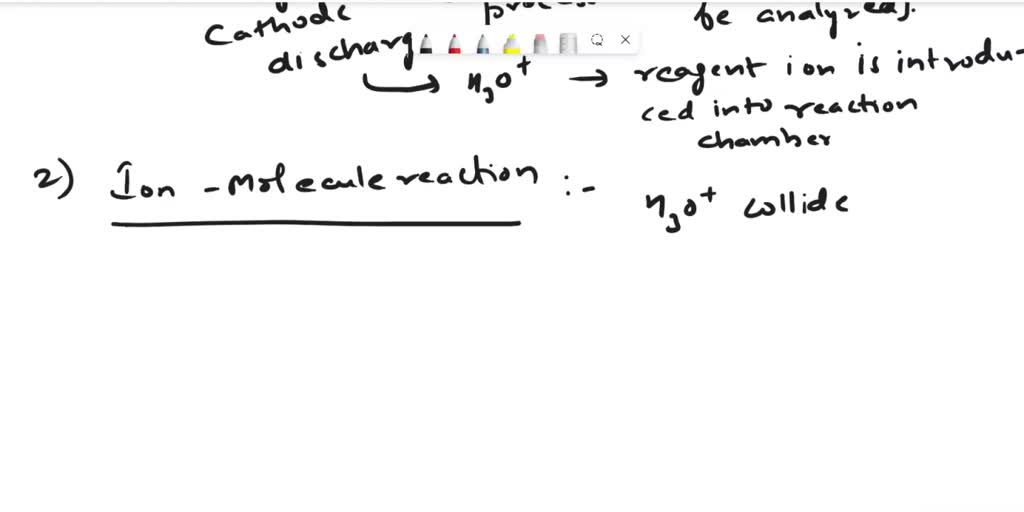 Cathode
be analyzed).
discharg
H3O+ → reagent ion is introdu-
ced into reaction
chamber
2) Ion - Molecule reaction :-
H3O+ collide